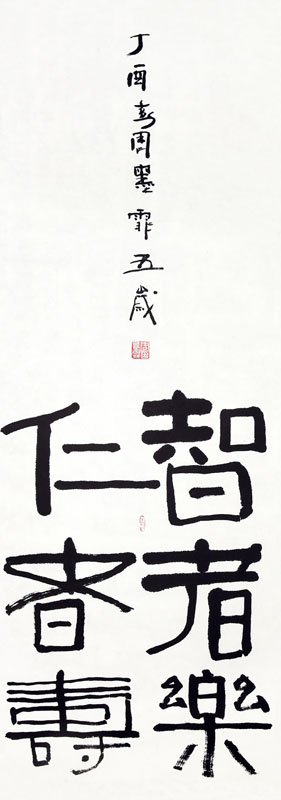 智者樂
仁者壽
丁酉春周墨霏五歲